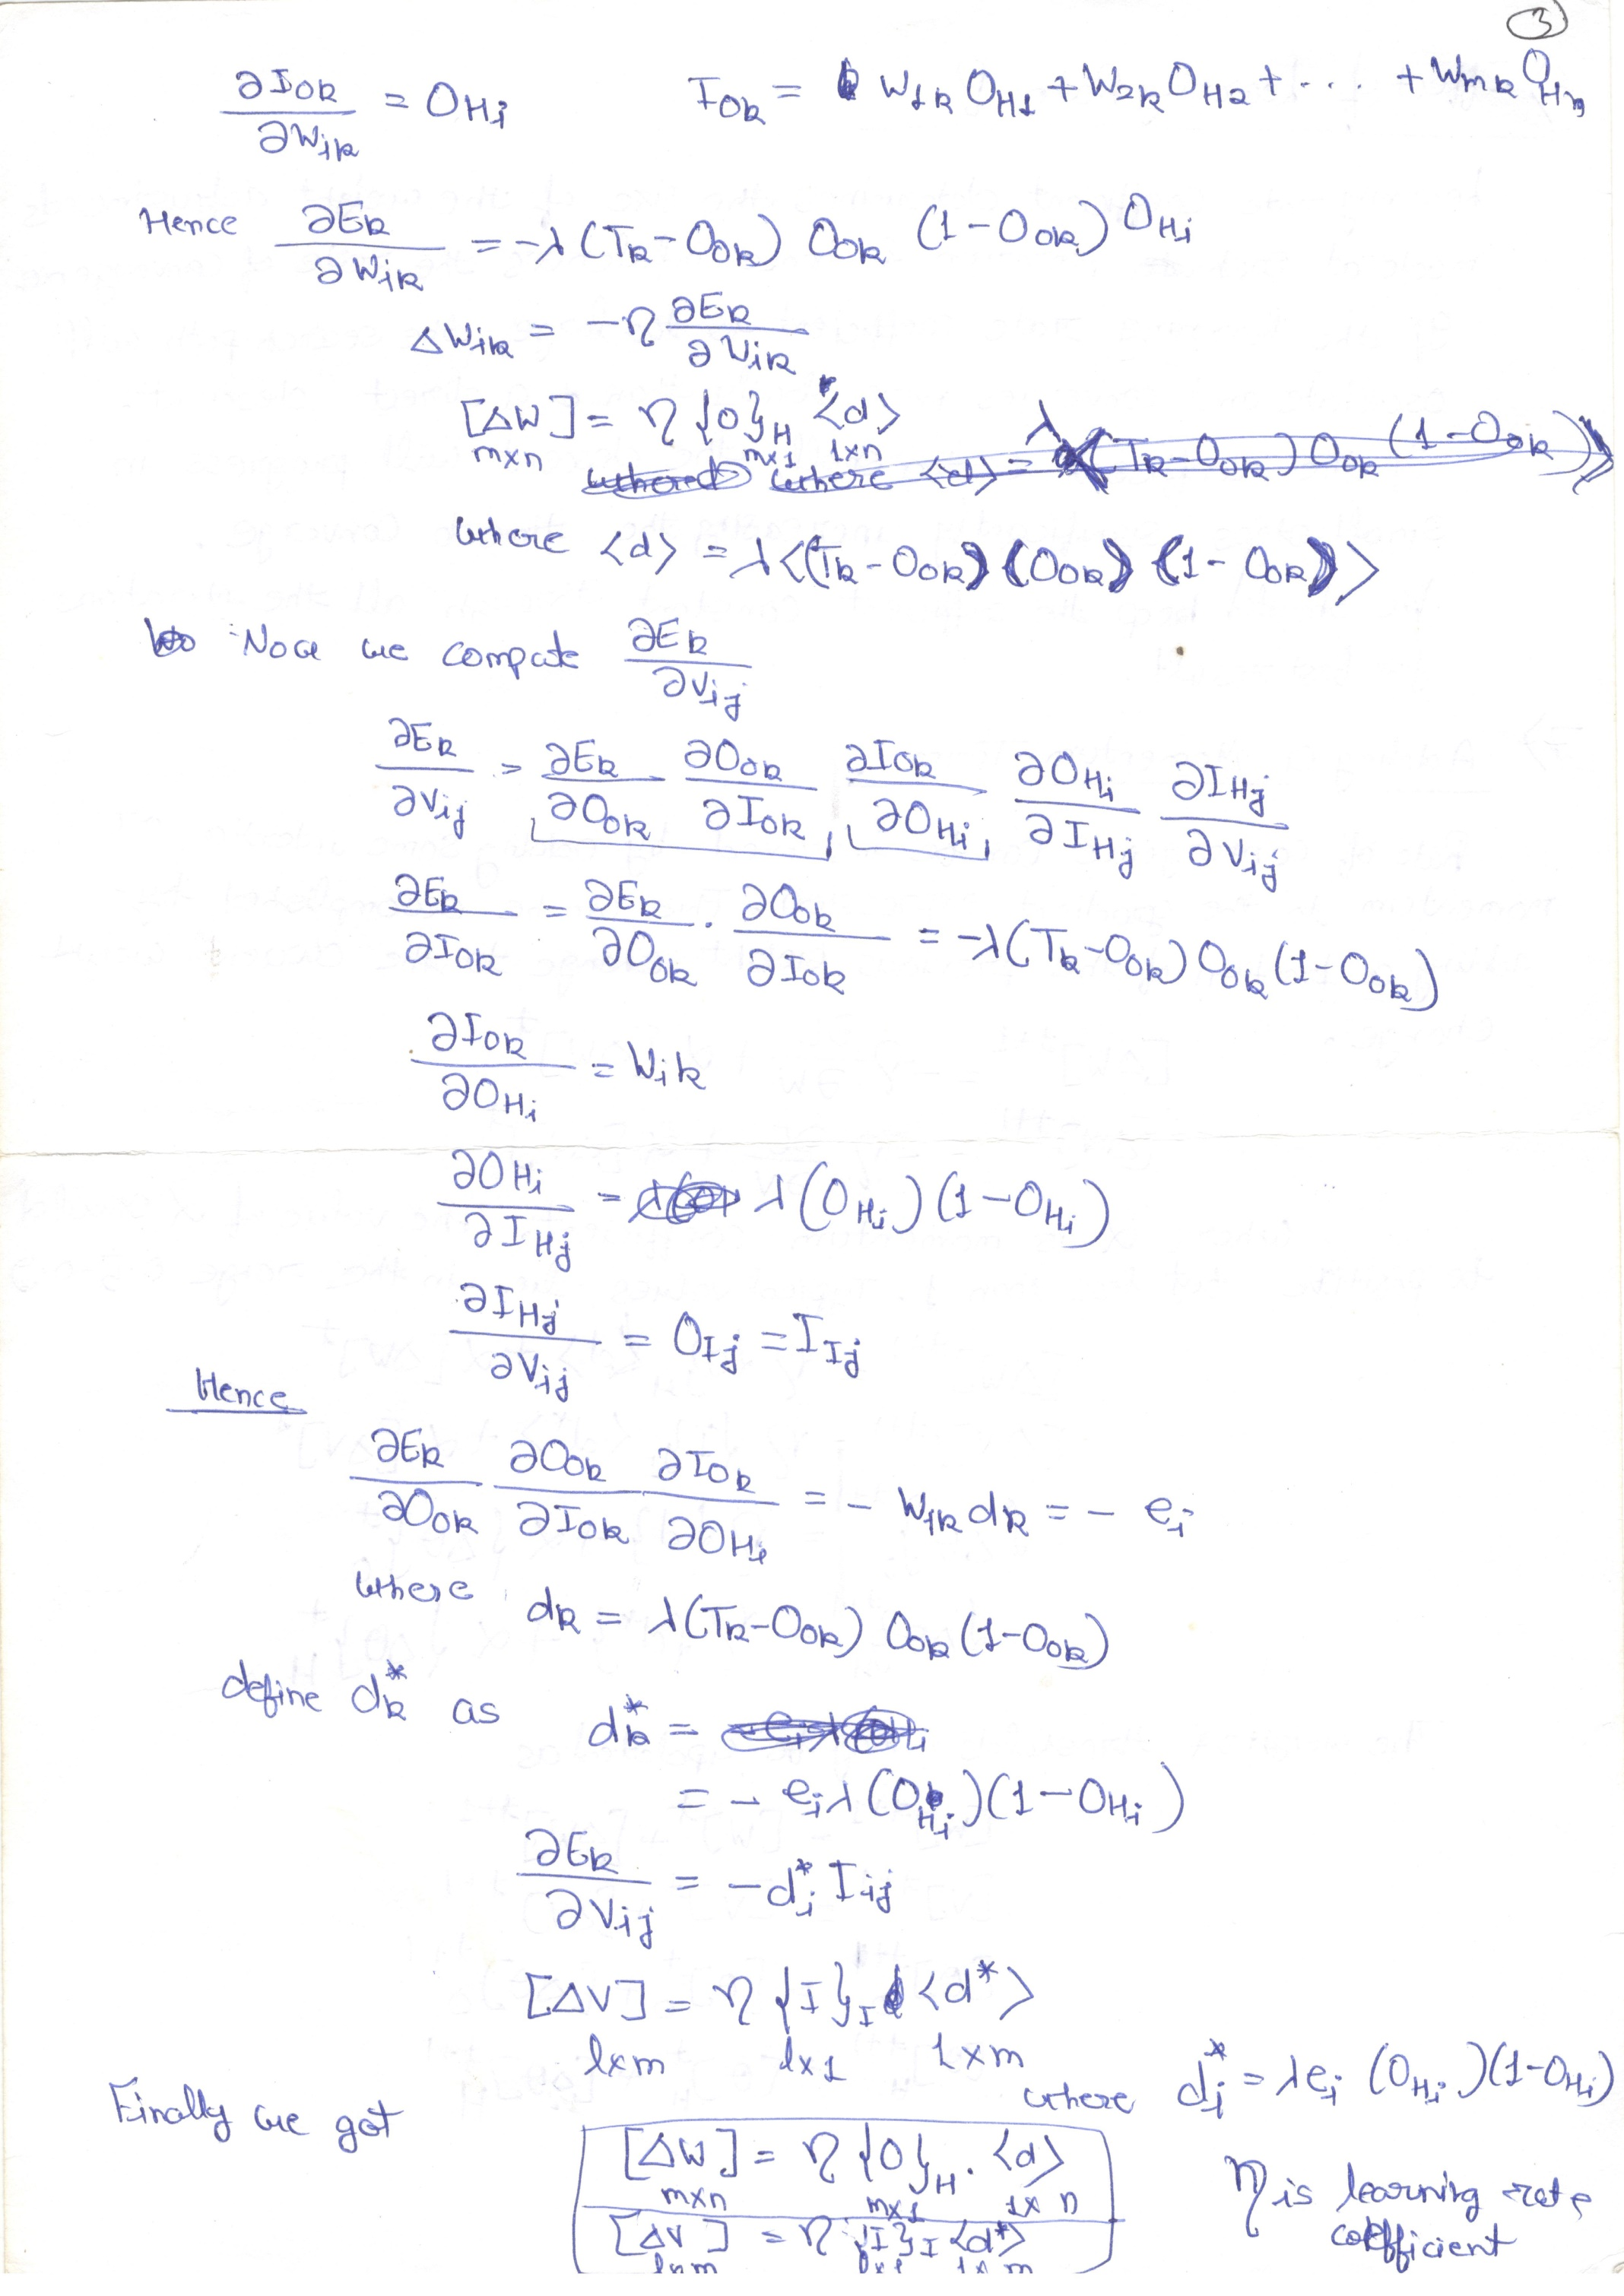 3
∂I_OK/∂W_iK = O_Hi    I_OK = W_1K O_H1 + W_2K O_H2 + ... + W_mK O_Hm
Hence ∂E_K/∂W_iK = -λ(T_K - O_OK) O_OK (1 - O_OK) O_Hi
ΔW_iK = -η ∂E_K/∂V_iK
[ΔW] = η {O}_H <d>
m×n m×1 1×n
where <d> = λ(T_K - O_OK) O_OK (1 - O_OK)
where <d> = λ<(T_K - O_OK)(O_OK)(1 - O_OK)>
Now we compute ∂E_K/∂V_ij
∂E_K/∂V_ij = ∂E_K/∂O_OK ∂O_OK/∂I_OK, ∂I_OK/∂O_Hi, ∂O_Hi/∂I_Hj ∂I_Hj/∂V_ij
∂E_K/∂I_OK = ∂E_K/∂O_OK . ∂O_OK/∂I_OK = -λ(T_K - O_OK) O_OK (1 - O_OK)
∂I_OK/∂O_Hi = W_ik
∂O_Hi/∂I_Hj = λ(O_Hi)(1 - O_Hi)
∂I_Hj/∂V_ij = O_Ij = I_Ij
Hence
∂E_K/∂O_OK ∂O_OK/∂I_OK ∂I_OK/∂O_Hi = - W_iK d_K = - e_i
where d_K = λ(T_K - O_OK) O_OK (1 - O_OK)
define d*_K as d*_K =
= - e_i λ (O_Hi)(1 - O_Hi)
∂E_K/∂V_ij = - d*_i I_ij
[ΔV] = η {I}_I <d*>
l×m l×1 1×m
where d*_i = λ e_i (O_Hi)(1 - O_Hi)
Finally we got
[ΔW] = η {O}_H . <d>
m×n m×1 1×n
[ΔV] = η {I}_I <d*>
l×m l×1 1×m
η is learning rate
coefficient